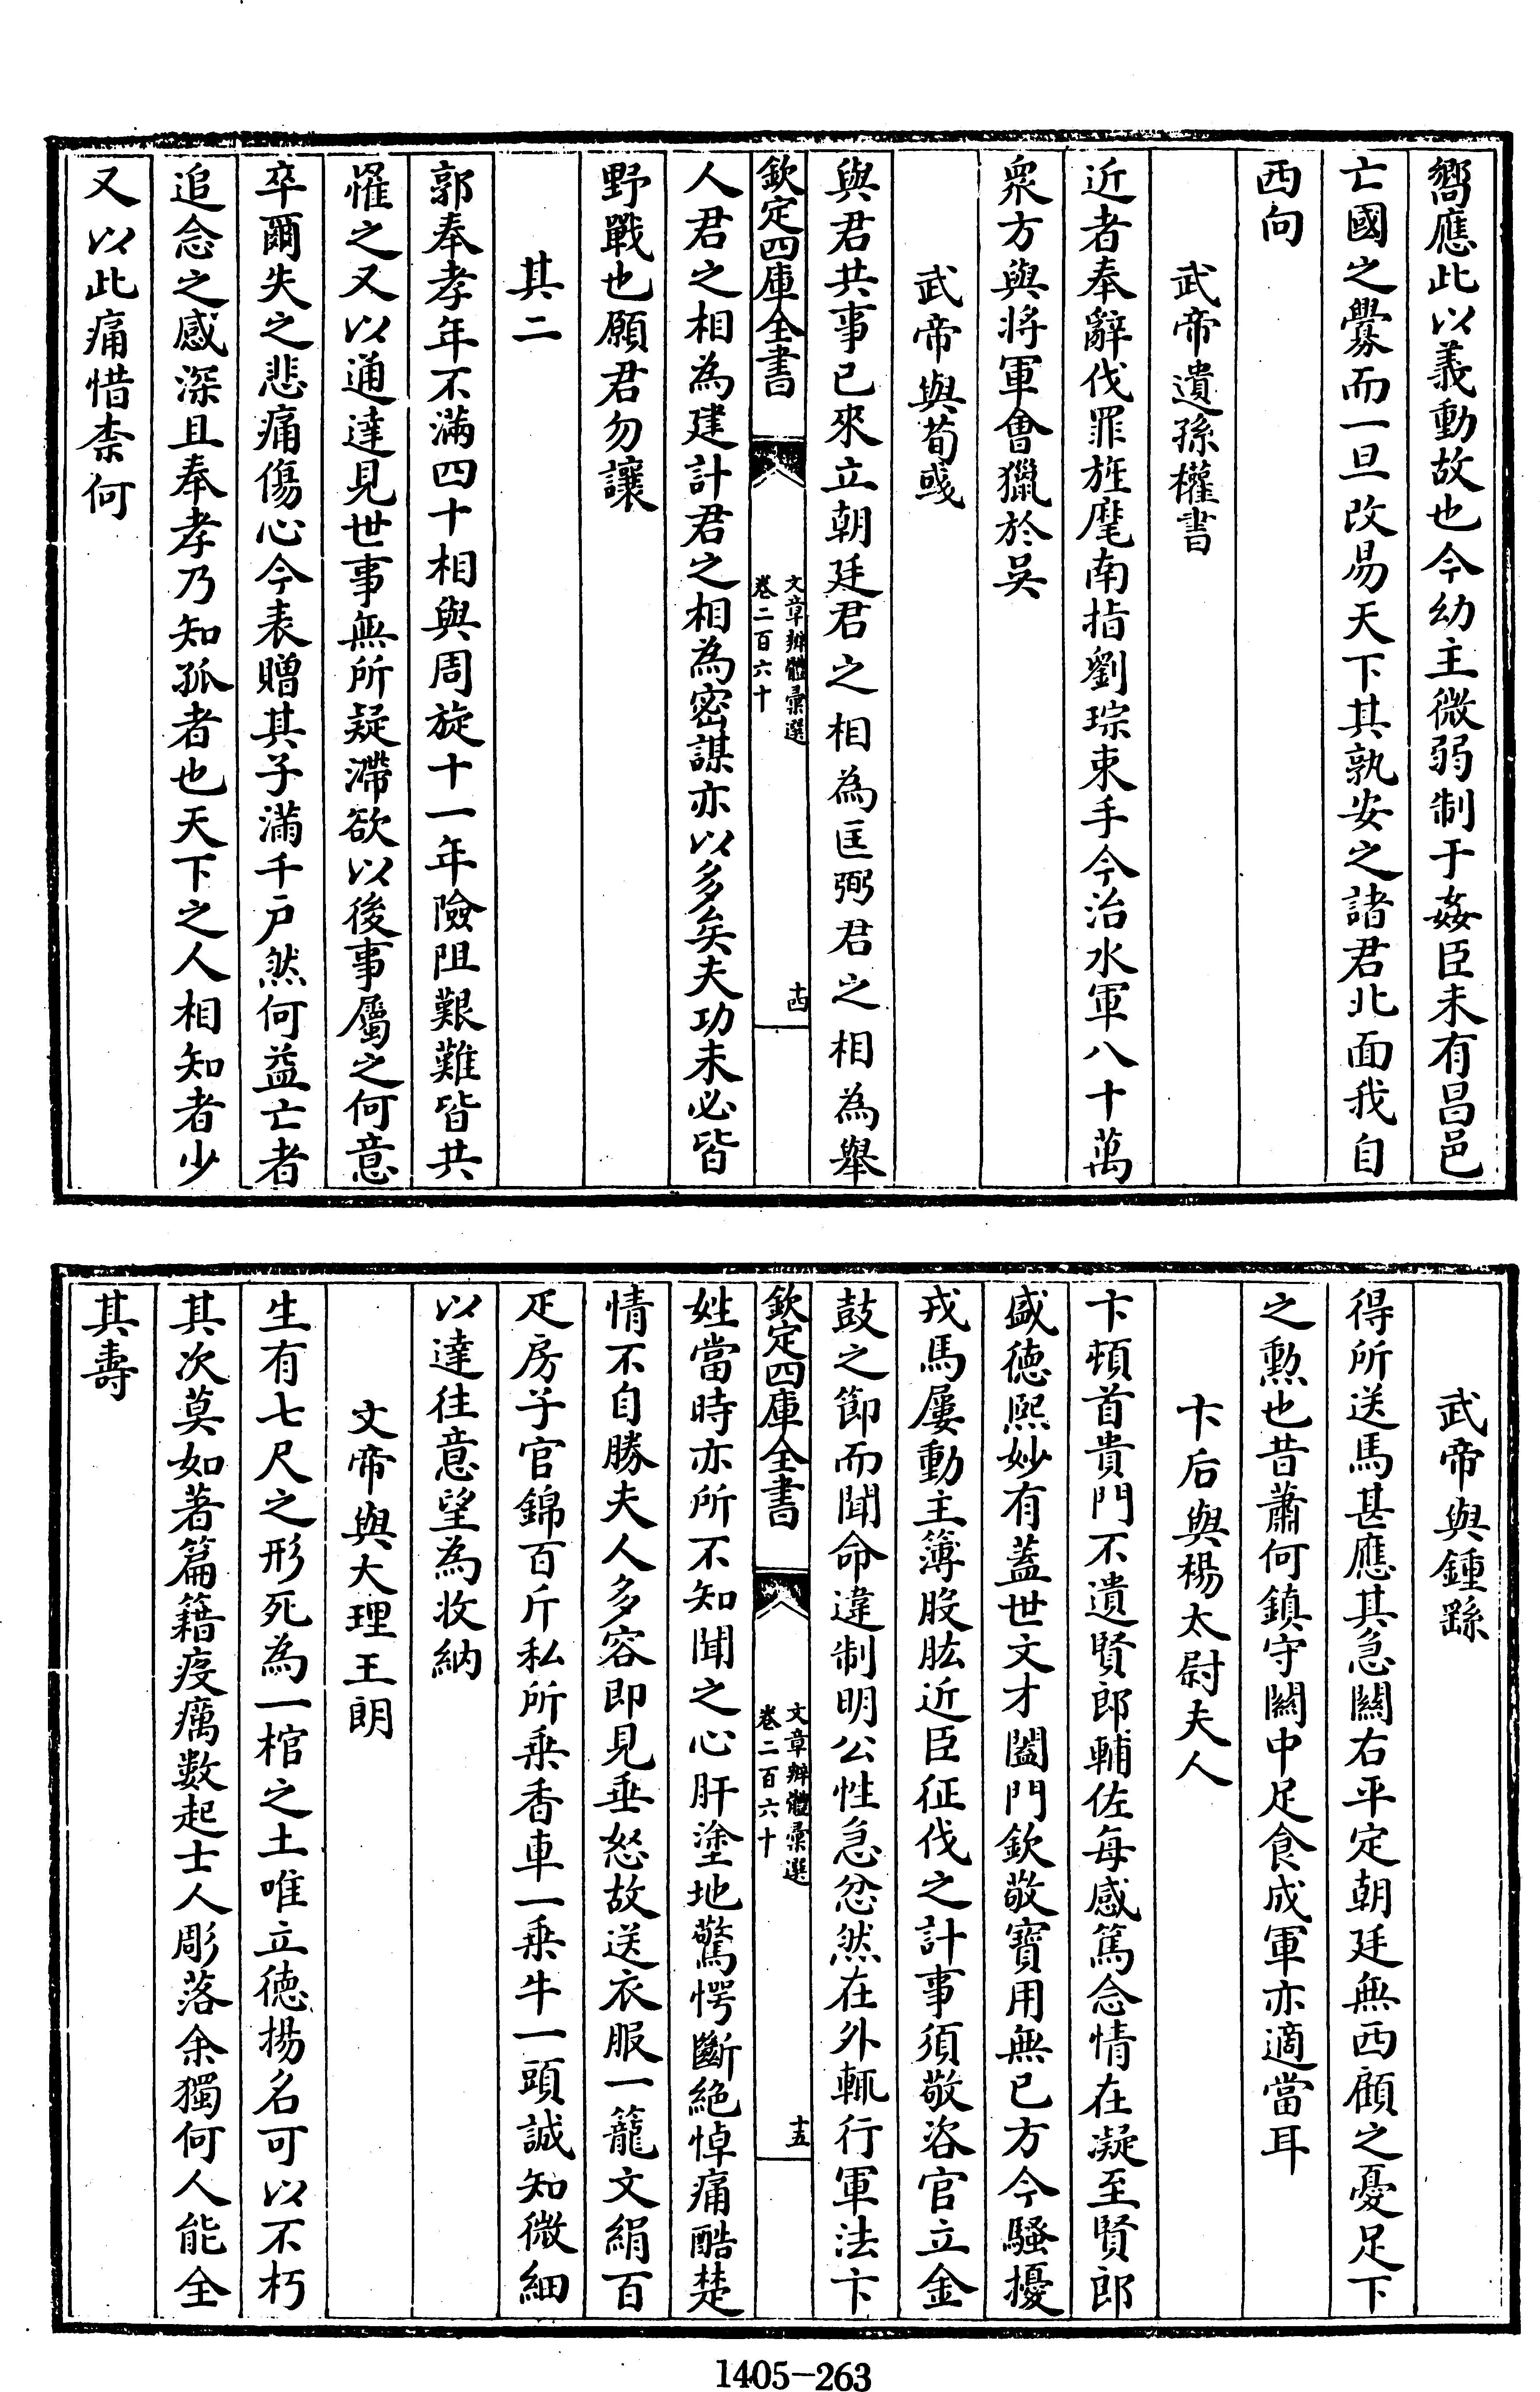 嚮應此以義動故也今幼主微弱制于姦臣未有昌邑
亡國之釁而一旦改易天下其孰安之諸君北面我自
西向
武帝遺孫權書
近者奉辭伐罪旌麾南指劉琮束手今治水軍八十萬
衆方與將軍會獵於吳
武帝與荀彧
與君共事已來立朝廷君之相為匡弼君之相為舉
欽定四庫全書
文章辨體彙選
卷二百六十
十四
人君之相為建計君之相為密謀亦以多矣夫功未必皆
野戰也願君勿讓
其二
郭奉孝年不滿四十相與周旋十一年險阻艱難皆共
罹之又以通達見世事無所疑滯欲以後事屬之何意
卒爾失之悲痛傷心今表贈其子滿千戶然何益亡者
追念之感深且奉孝乃知孤者也天下之人相知者少
又以此痛惜柰何
武帝與鍾繇
得所送馬甚應其急關右平定朝廷無西顧之憂足下
之勲也昔蕭何鎮守關中足食成軍亦適當耳
卞后與楊太尉夫人
卞頓首貴門不遺賢郎輔佐每感篤念情在凝至賢郎
盛德熙妙有蓋世文才闔門欽敬寶用無已方今騷擾
戎馬屢動主簿股肱近臣征伐之計事須敬咨官立金
鼓之節而聞命違制明公性急忿然在外輒行軍法卞
欽定四庫全書
文章辨體彙選
卷二百六十
十五
姓當時亦所不知聞之心肝塗地驚愕斷絶悼痛酷楚
情不自勝夫人多容即見垂恕故送衣服一籠文絹百
疋房子官錦百斤私所乗香車一乗牛一頭誠知微細
以達往意望為收納
文帝與大理王朗
生有七尺之形死為一棺之土唯立德揚名可以不朽
其次莫如著篇籍疫癘數起士人彫落余獨何人能全
其壽
1405-263